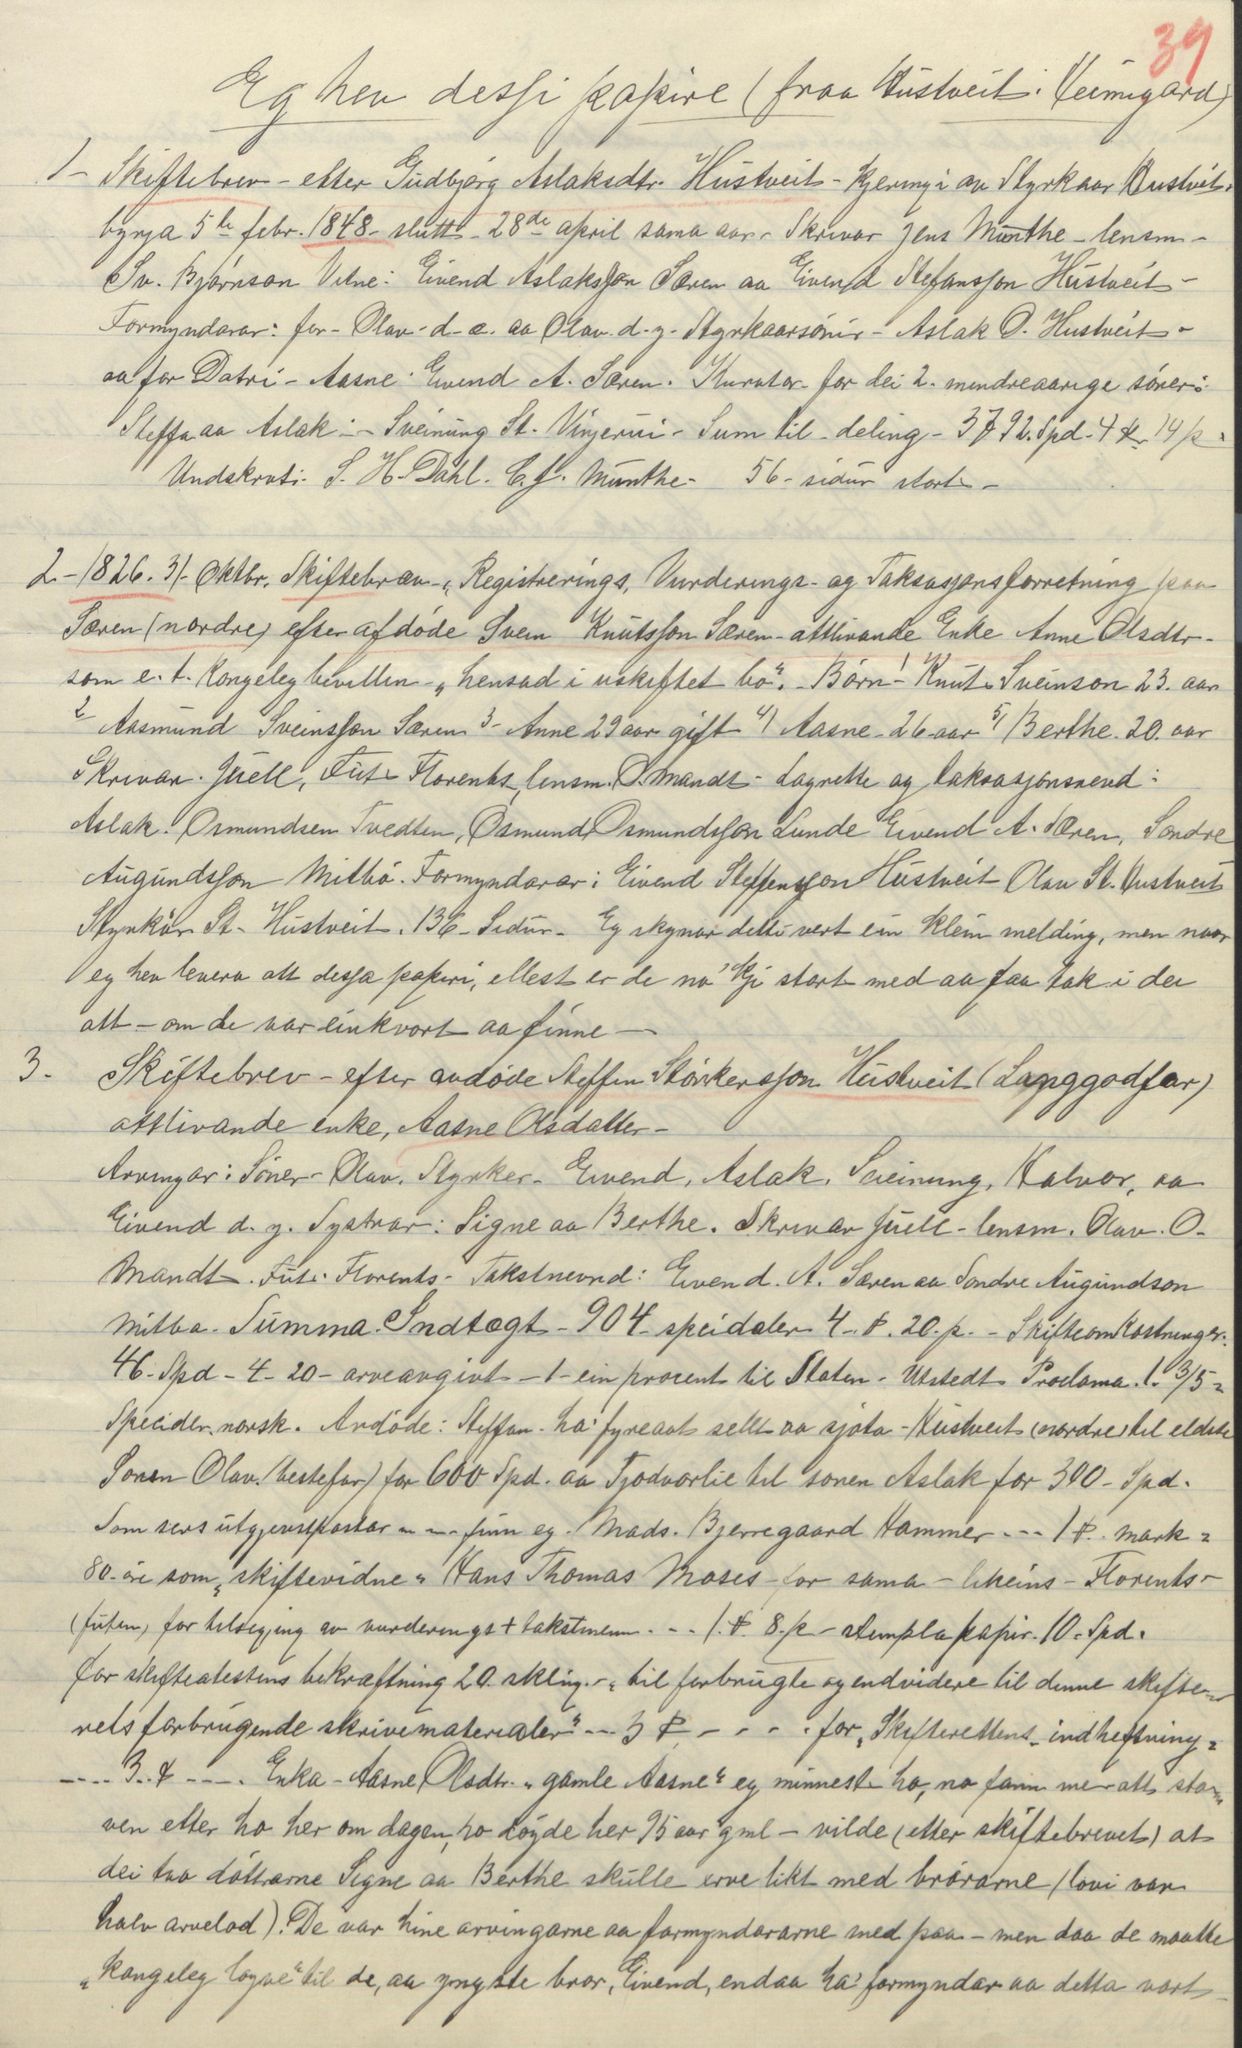 39
Eg hev dessi papire (fraa Hustveit. Heimigard)
1- Skiftebrev - etter Gudbjørg Aslaksdtr. Hustveit - kjerring av Styrkaar Hustveit.
byrja 5te febr. 1848 - slutt - 28de april sama aar - Skrivar Jens Munthe - lensm -
Sv. Bjørnson Vitne: Eivend Aslaksson Særen aa Eivend Stefansson Hustveit -
Formyndarar: for - Olav - d. e. aa Olav. d. y. Styrkaarsönir - Aslak O. Hustveit -
aa for Dotri - Aasne: Eivend A. Særen. Kurator for dei 2. mindreaarige söner:
Steffa aa Aslak: - Sveinung St. Vinjerui - Sum til - deling - 3792. Spd. 4 ₰ 14 p.
Undskrvt: S. H. Dahl. C. f. Munthe - 56 - sidur stort -
2 - 1826. 31 - Oktbr. Skiftebrev - „Registrerings, Vurderings - og Taksasjonsforretning paa
Særen (nordre) efter afdöde Svein Knutsson Særen - attlivande Enke Anne Olsdtr -
som e. t. Kongeleg bevillin - „hensad i uskiftet bo". - Börn - 1 Knut Sveinson 23. aar
2 Aasmund Sveinsson Særen 3 - Anne 29 aar gift 4) Aasne - 26 aar 5/ Berthe. 20. aar
Skrivar. Juell, Fut: Florents, lensm. O. Mandt - Lagrette og taksasjonsnevd:
Aslak. Osmundsen Tvedten, Osmund Osmundsson Lunde Eivend A. Særen, Sondre
Augundsson Mitbö. Formyndarar: Eivend Steffensson Hustveit Olav St. Hustveit
Styrkår St. Hustveit. 136 - Sidur - Eg skynar dette vert ein klein melding, men naar
eg hev levera att dessa papiri, ellest er de no' kji stort med aa faa tak i dei
att - om de var einkvort aa finne -
3. Skiftebrev - efter avdöde Steffen Störkersson Hustveit (Langgodfar)
attlivande enke, Aasne Olsdatter -
Arvingar: Söner - Olav, Styrker - Eivend, Aslak, Sveinung, Halvor, aa
Eivend d. y. Systrar: Signe aa Berthe. Skrivar Juell - lensm. Olav. O.
Mandt. Fut: Florents - Takstnevnd: Eivend. A. Særen aa Sondre Augundson
Mitbø. Summa Indtægt - 904 - speidaler 4 - ₰. 20. p. - Skifteomkostninger.
46 - Spd - 4 - 20 - arveavgivt - 1 - ein prosent til Staten - Utstedt Proclama. 1. 3/5 =
Specider norsk. Avdöde: Steffen - ha' fyreaat sellt aa sjøta - Hustveit (nordre) til eldste
Sonen Olav (bestefar) for 600 Spd. aa Tjodvarlie til sonen Aslak for 300 - Spd.
Som sers utgjevspostar finn eg - Mads. Bjerregaard Hammer --- 1 ₰. mark =
80 - öre som „skiftevidne" Hans Thomas Moses - for sama - likeins - Florents -
(futen) for tilsigjing av vurderings + takstmenn. - - 1. ₰. 8. p - stempla papir. 10 - Spd.
for skifteatestens bekræftning 20. skling. - „til forbrugte og endvidere til denne skifte-
rets forbrugende skrivematerialer" --- 3 ₰ - - - . for „Skifterettens - indheftning =
---- 3. ₰ ----. Enka - Aasne Olsdtr. „gamle Aasne" eg minnest ho, no finn me att sta-
ven etter ho her om dagen, ho döyde her 95 aar gml - vilde (etter skiftebrevet) at
dei tvo döttrarne Signe aa Berthe skulle erve likt med brørarne (lovi var
halv arvelod). De var hine arvingarne aa formyndararne med paa - men daa de maatte
„kongeleg loyve" til de, aa yngste bror, Eivend, endaa ha' formyndar aa detta vart